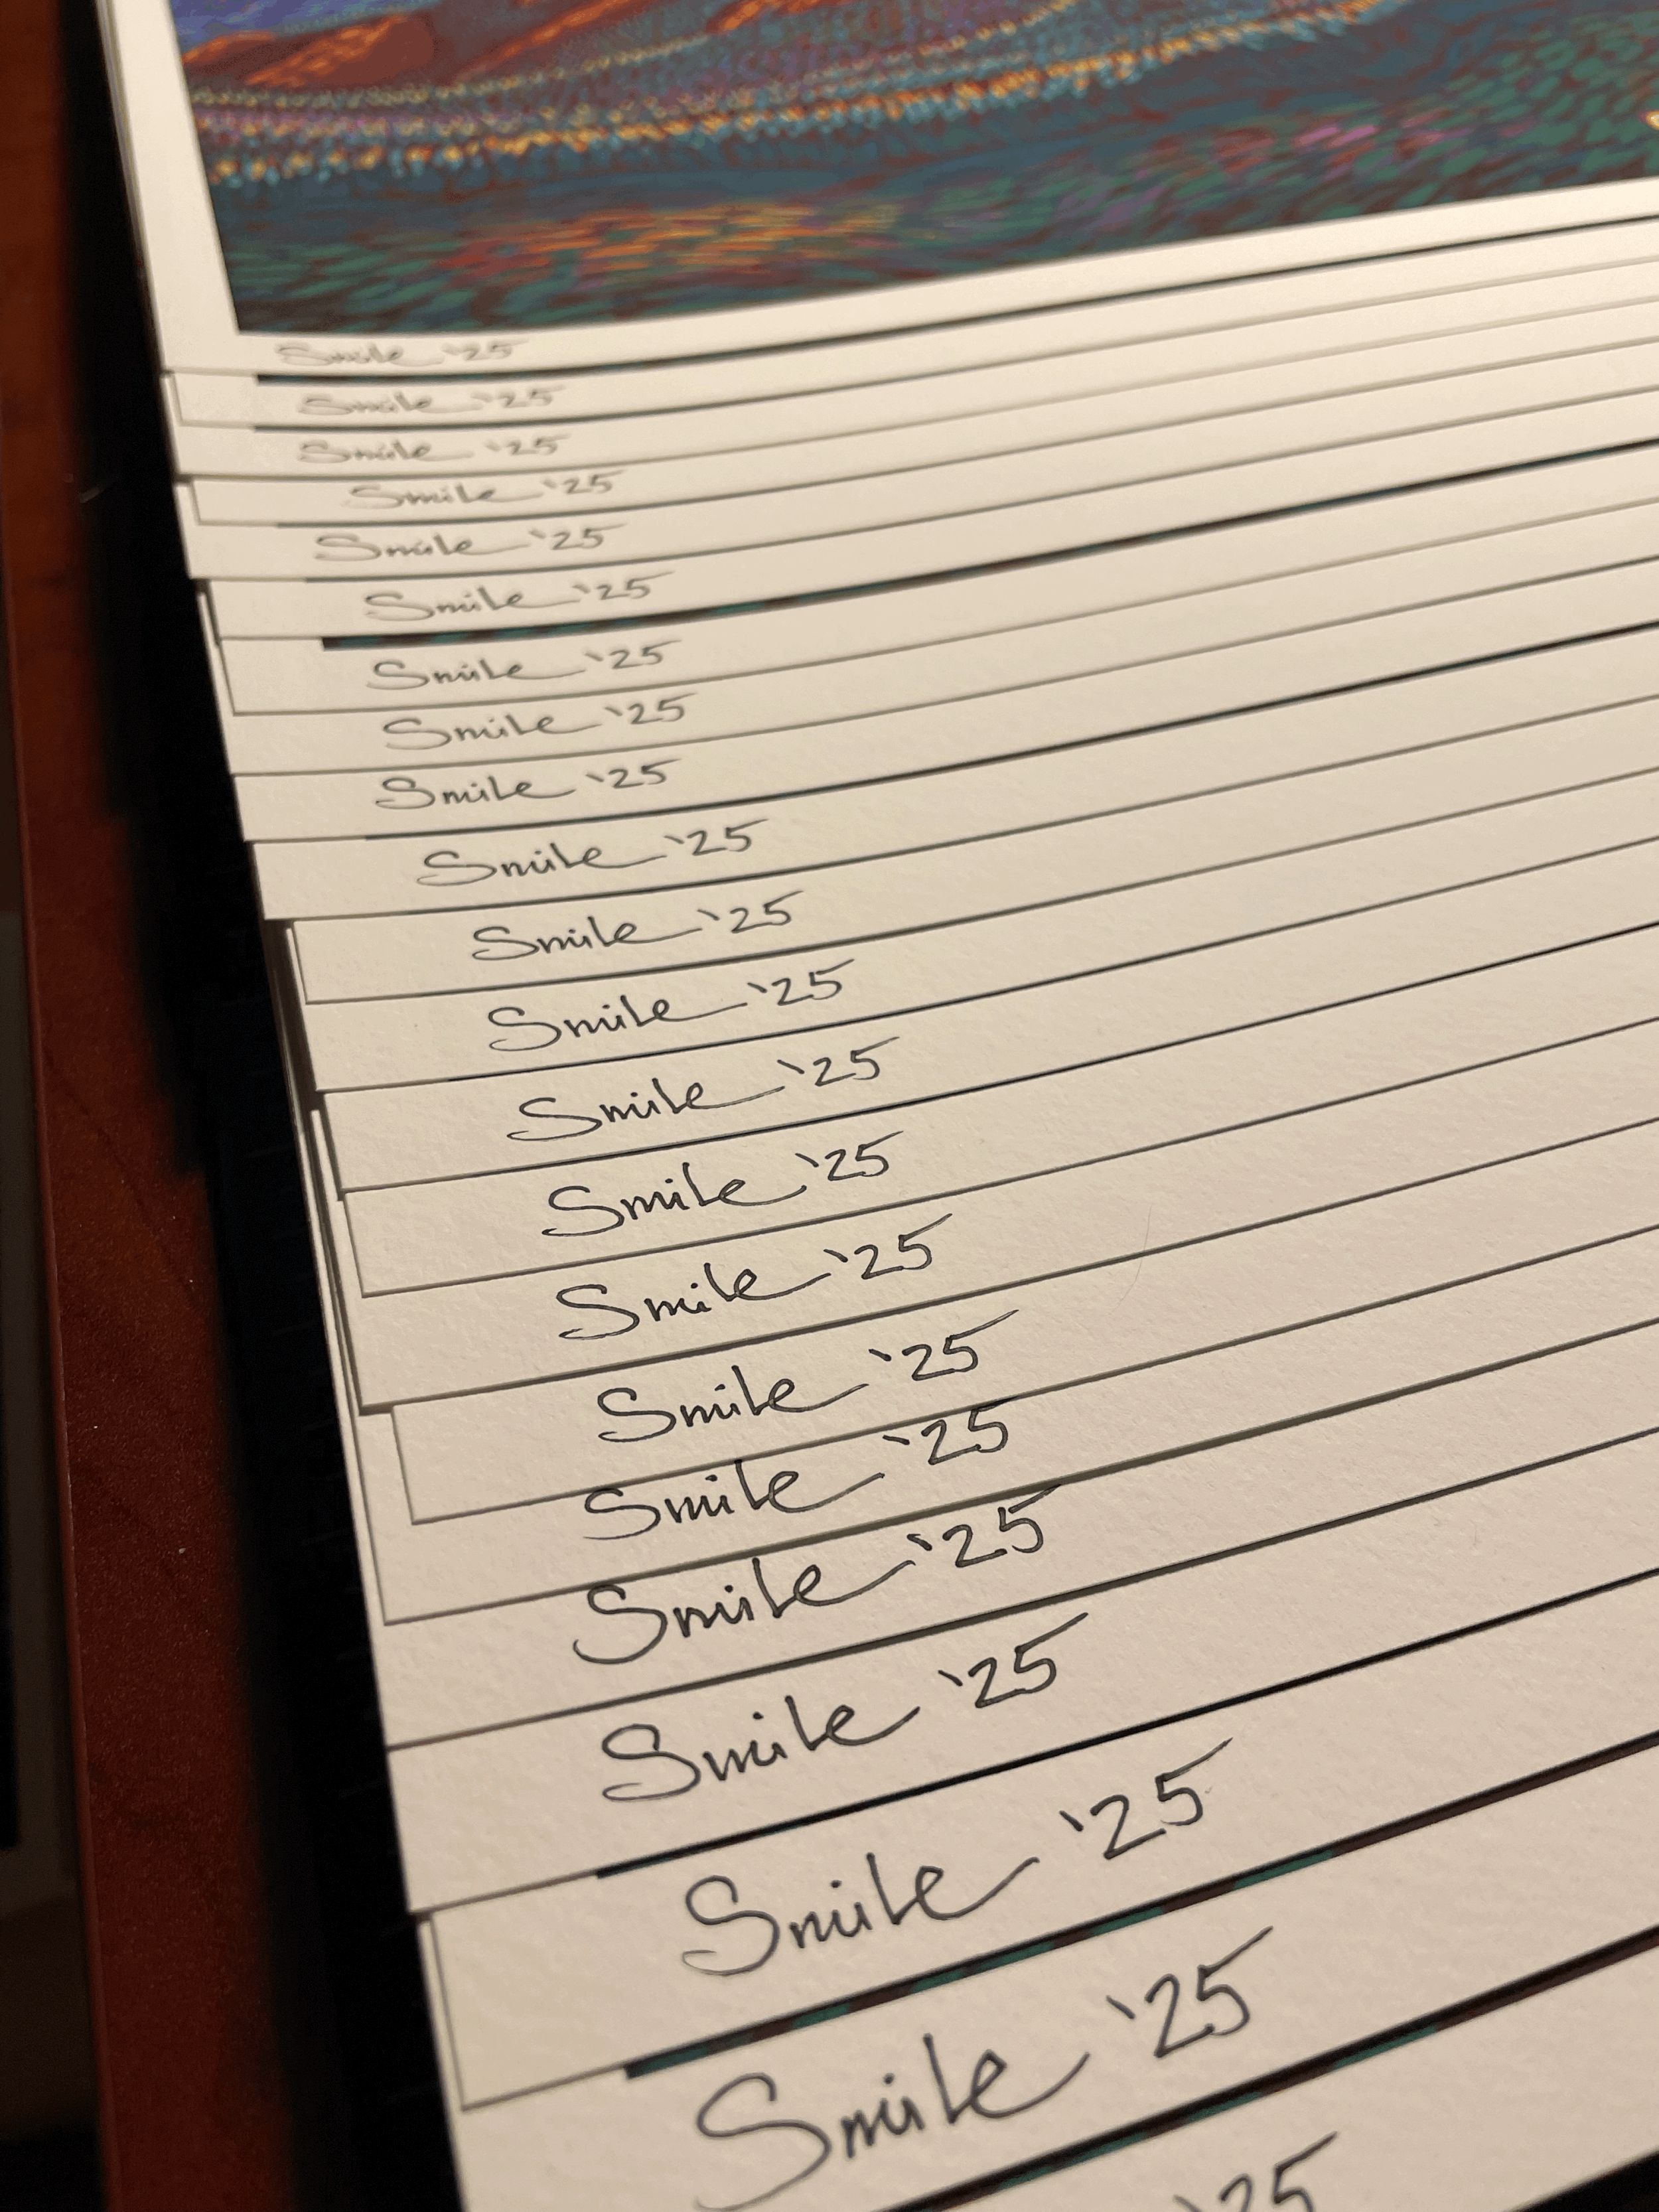 Smile '25
Smile '25
Smile '25
Smile '25
Smile '25
Smile '25
Smile '25
Smile '25
Smile '25
Smile '25
Smile '25
Smile '25
Smile '25
Smile '25
Smile '25
Smile '25
Smile '25
Smile '25
Smile '25
Smile '25
Smile '25
'25